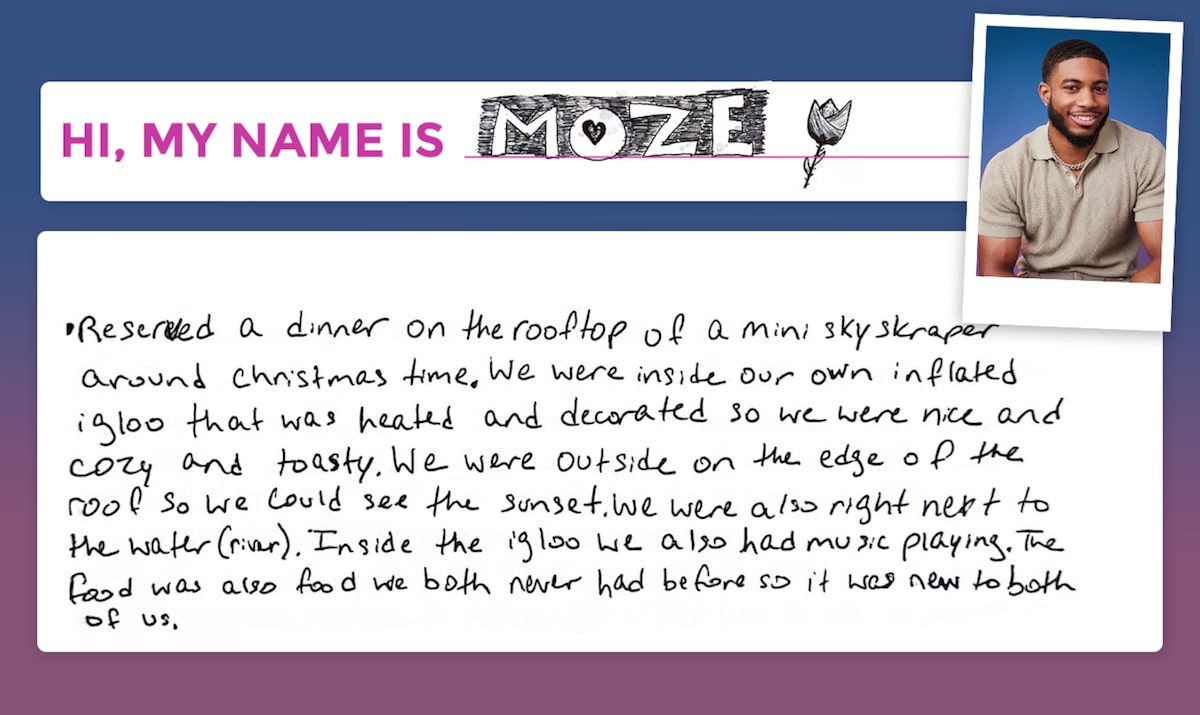 HI, MY NAME IS MOZE
•Reserved a dinner on the rooftop of a mini skyskraper
around christmas time. We were inside our own inflated
igloo that was heated and decorated so we were nice and
cozy and toasty. We were outside on the edge of the
roof so we could see the sunset. We were also right next to
the water (river). Inside the igloo we also had music playing. The
food was also food we both never had before so it was new to both
of us.